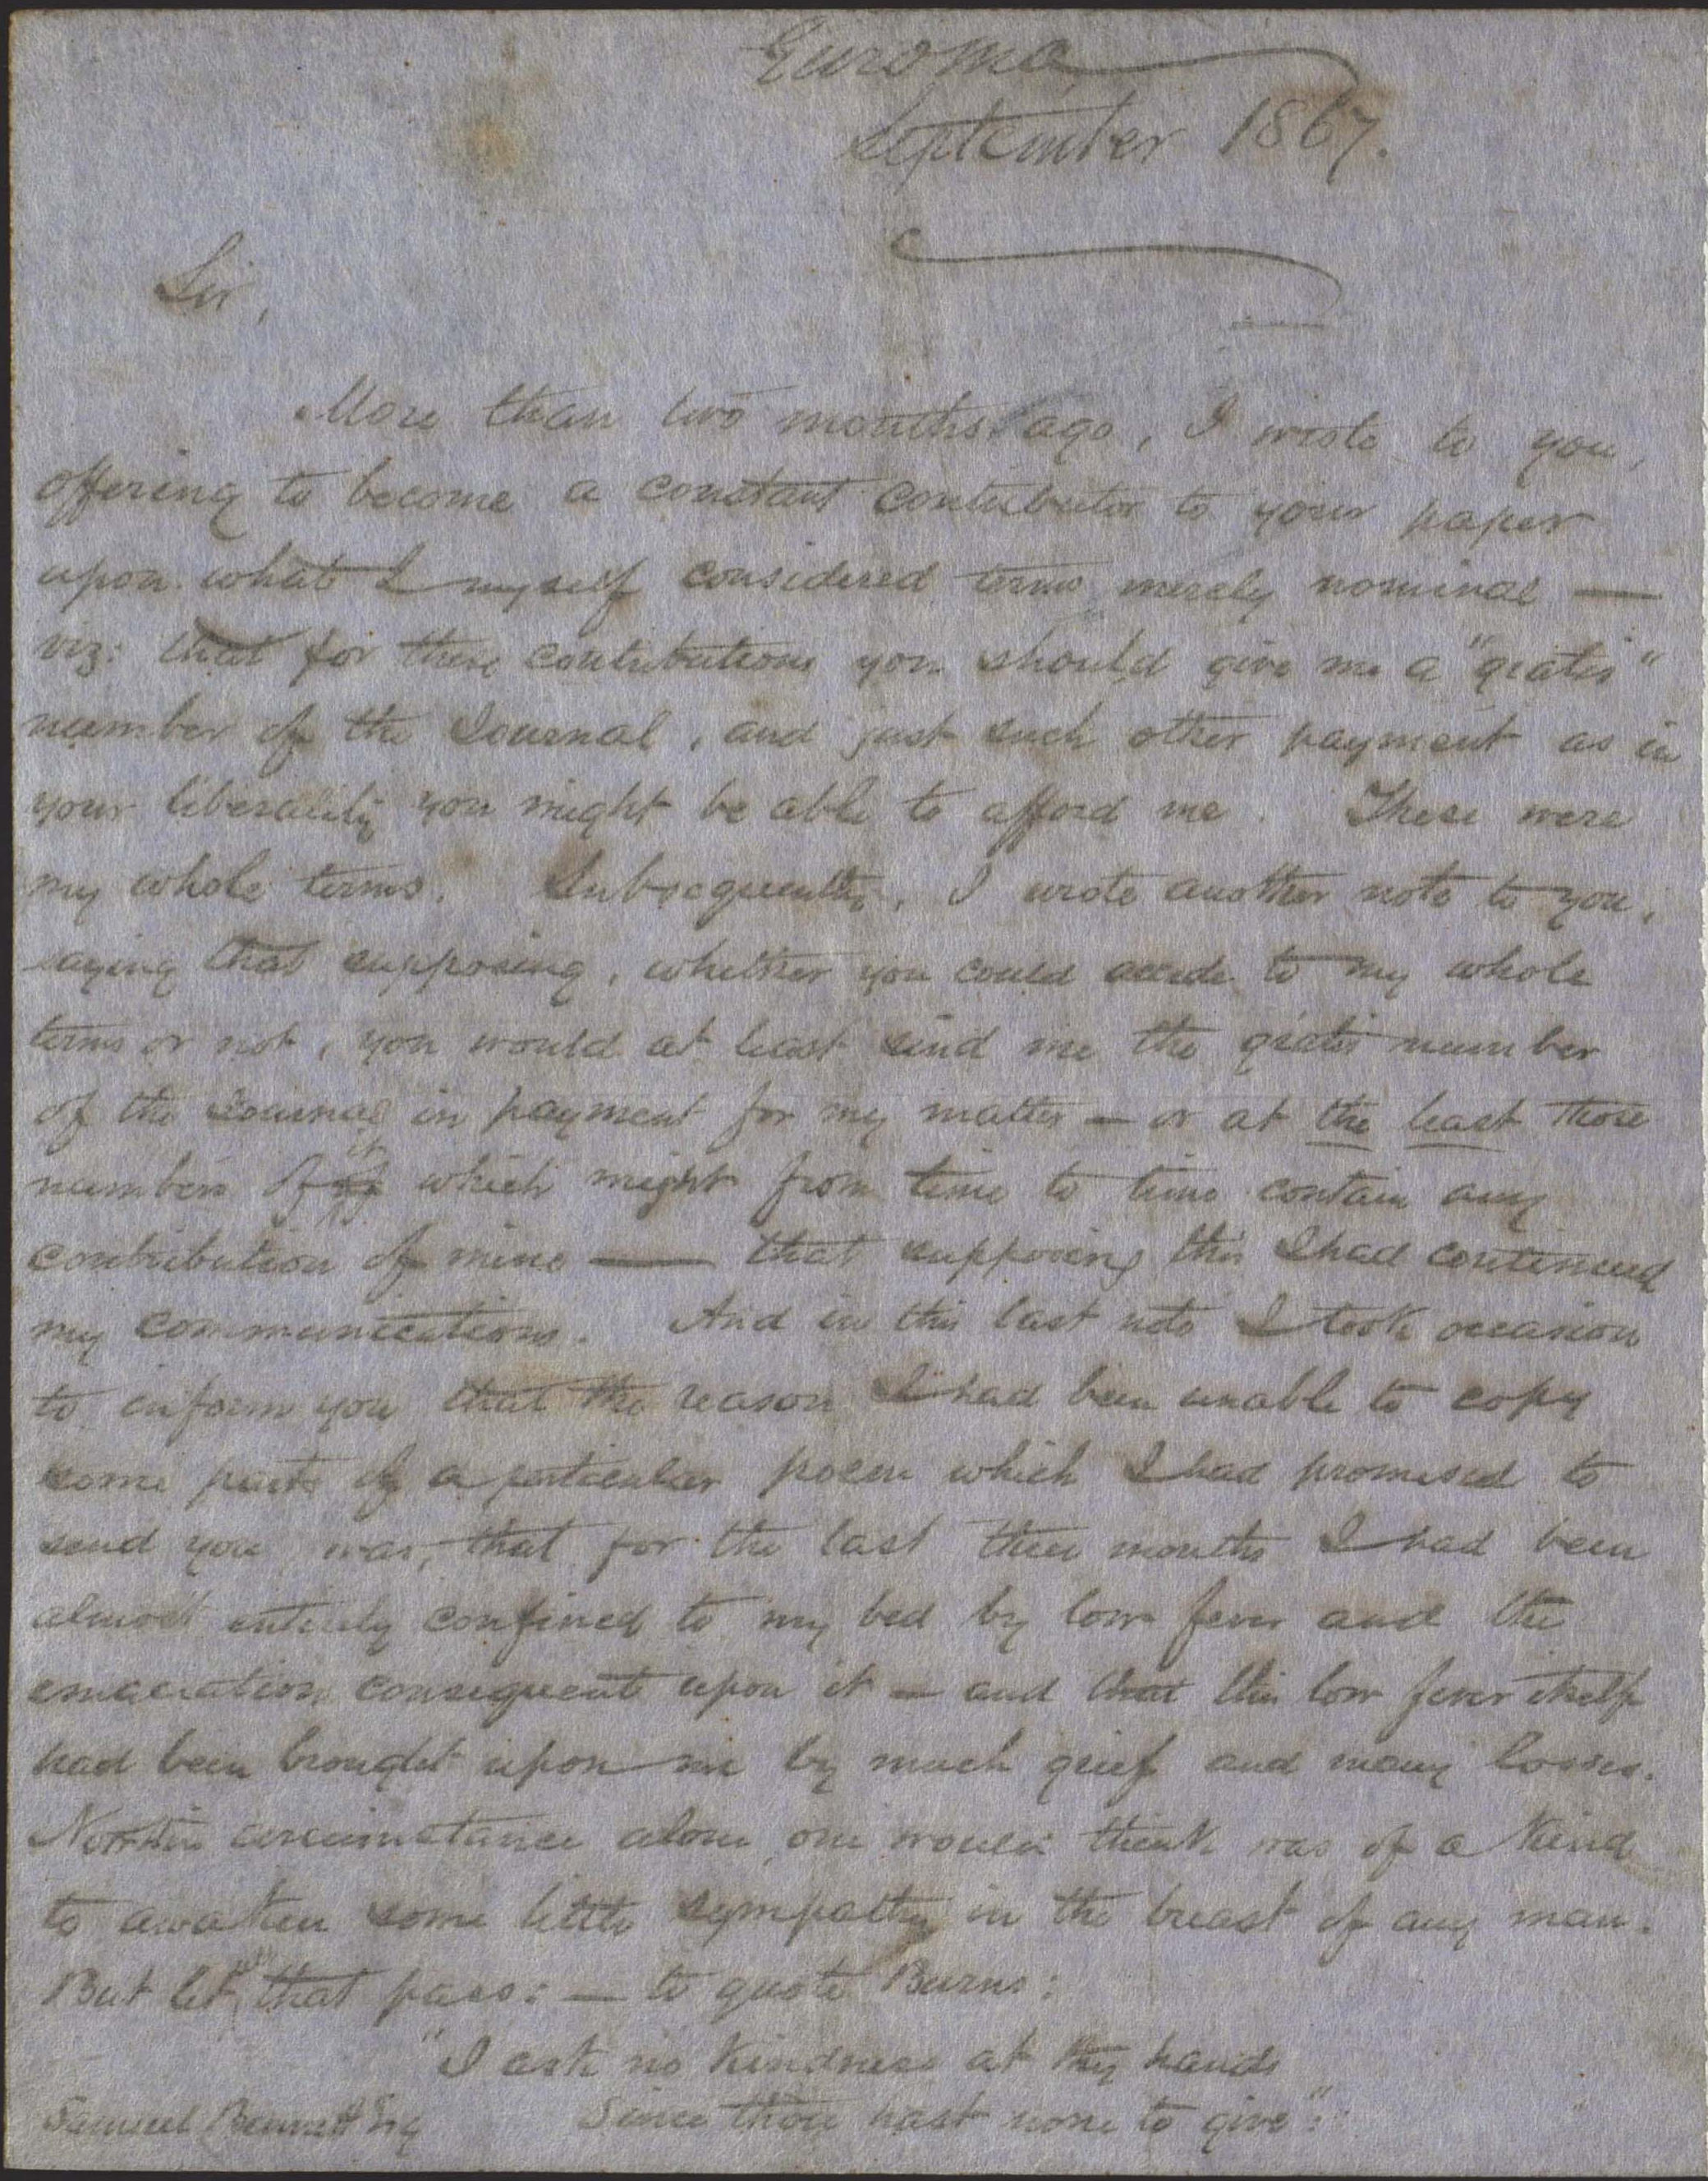 Euroma
September 1867.
Sir,
More than two months ago, I wrote to you,
offering to become a constant contributor to your paper
upon what I myself considered terms merely nominal —
viz: that for these contributions you should give me a "gratis"
number of the Journal, and just such other payment as in
your liberality you might be able to afford me. These were
my whole terms. Subsequently, I wrote another note to you,
saying that supposing, whether you could accede to my whole
terms or not, you would at least send me the gratis number
of the Journal in payment for my matter — or at the least those
numbers of it which might from time to time contain any
contribution of mine — that supposing this I had continued
my communications. And in this last note I took occasion
to inform you that the reason I had been unable to copy
some parts of a particular poem which I had promised to
send you was, that for the last three months I had been
almost entirely confined to my bed by low fever and the
emaciation consequent upon it — and that this low fever itself
had been brought upon me by much grief and many losses.
Now this circumstance alone, one would think was of a kind
to awaken some little sympathy in the breast of any man.
But let that pass: — to quote Burns:
"I ask no kindness at thy hands
Since thou hast none to give":
Samuel Bennett Esq